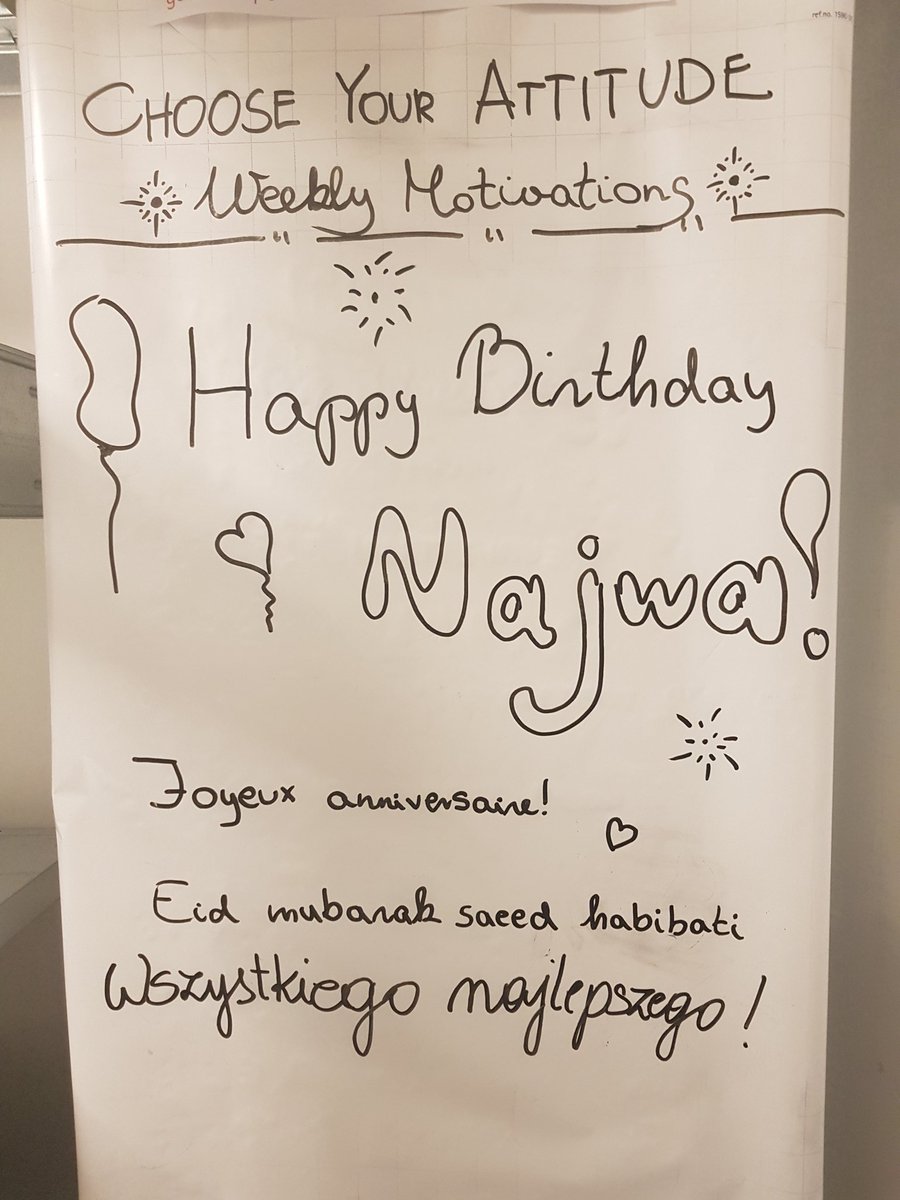 ref.no. 1596
CHOOSE YOUR ATTITUDE
Weekly Motivations
Happy Birthday
Najwa!
Joyeux anniversaire!
Eid mubarak saeed habibati
Wszystkiego najlepszego!